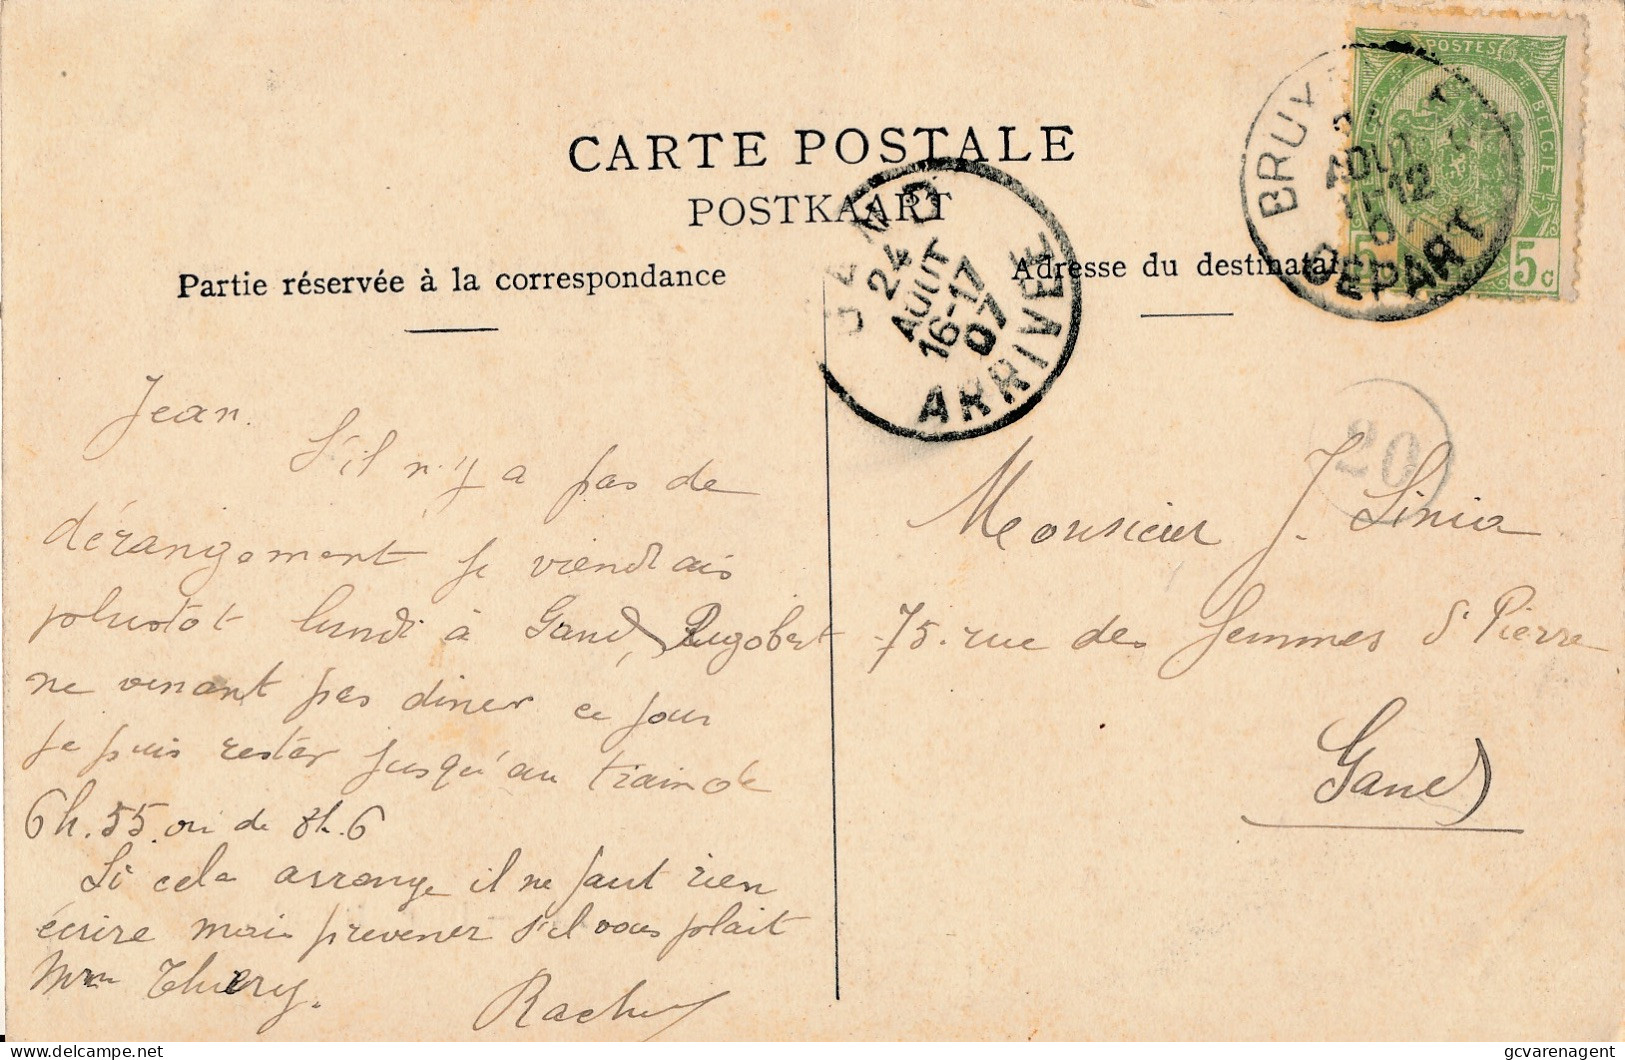 CARTE POSTALE
POSTKAART
Partie réservée à la correspondance
Adresse du destinatai
POSTES
BELGIE
5 5c
BRUX
AOUT
11-12
DEPART
GEND
24
AOUT
16-17
07
ARRIVEE
20
Jean.
S'il n'y a pas de
dérangement je viendrais
plustôt lundi à Gand, Rigobert
ne venant pas diner ce jour
je puis rester jusqu'au train de
6h.55 ou de 8h.6
Si cela arrange il ne faut rien
écrire mais prevener s'il vous plait
Mme Thiery.
Rachel
Monsieur J. Linia
75. rue des femmes St Pierre
Gand
delcampe.net
gcvarenagent